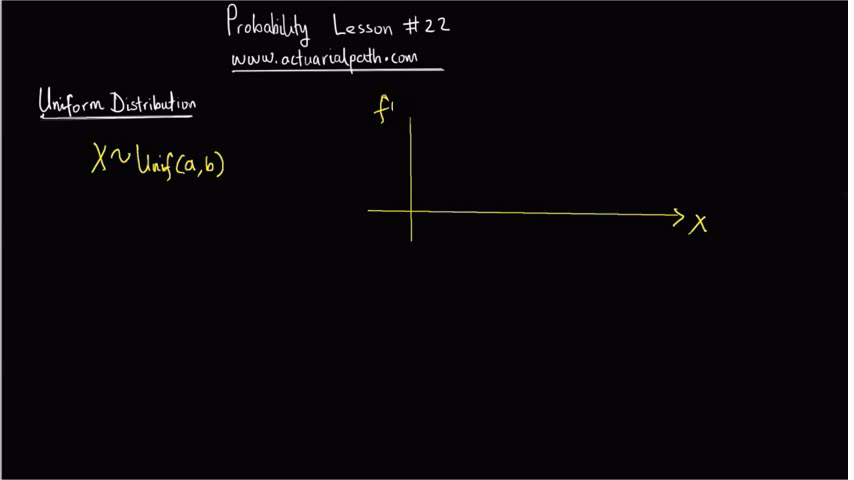 Probability Lesson #22
www.actuarialpath.com
Uniform Distribution
X~Unif(a,b)
f
X